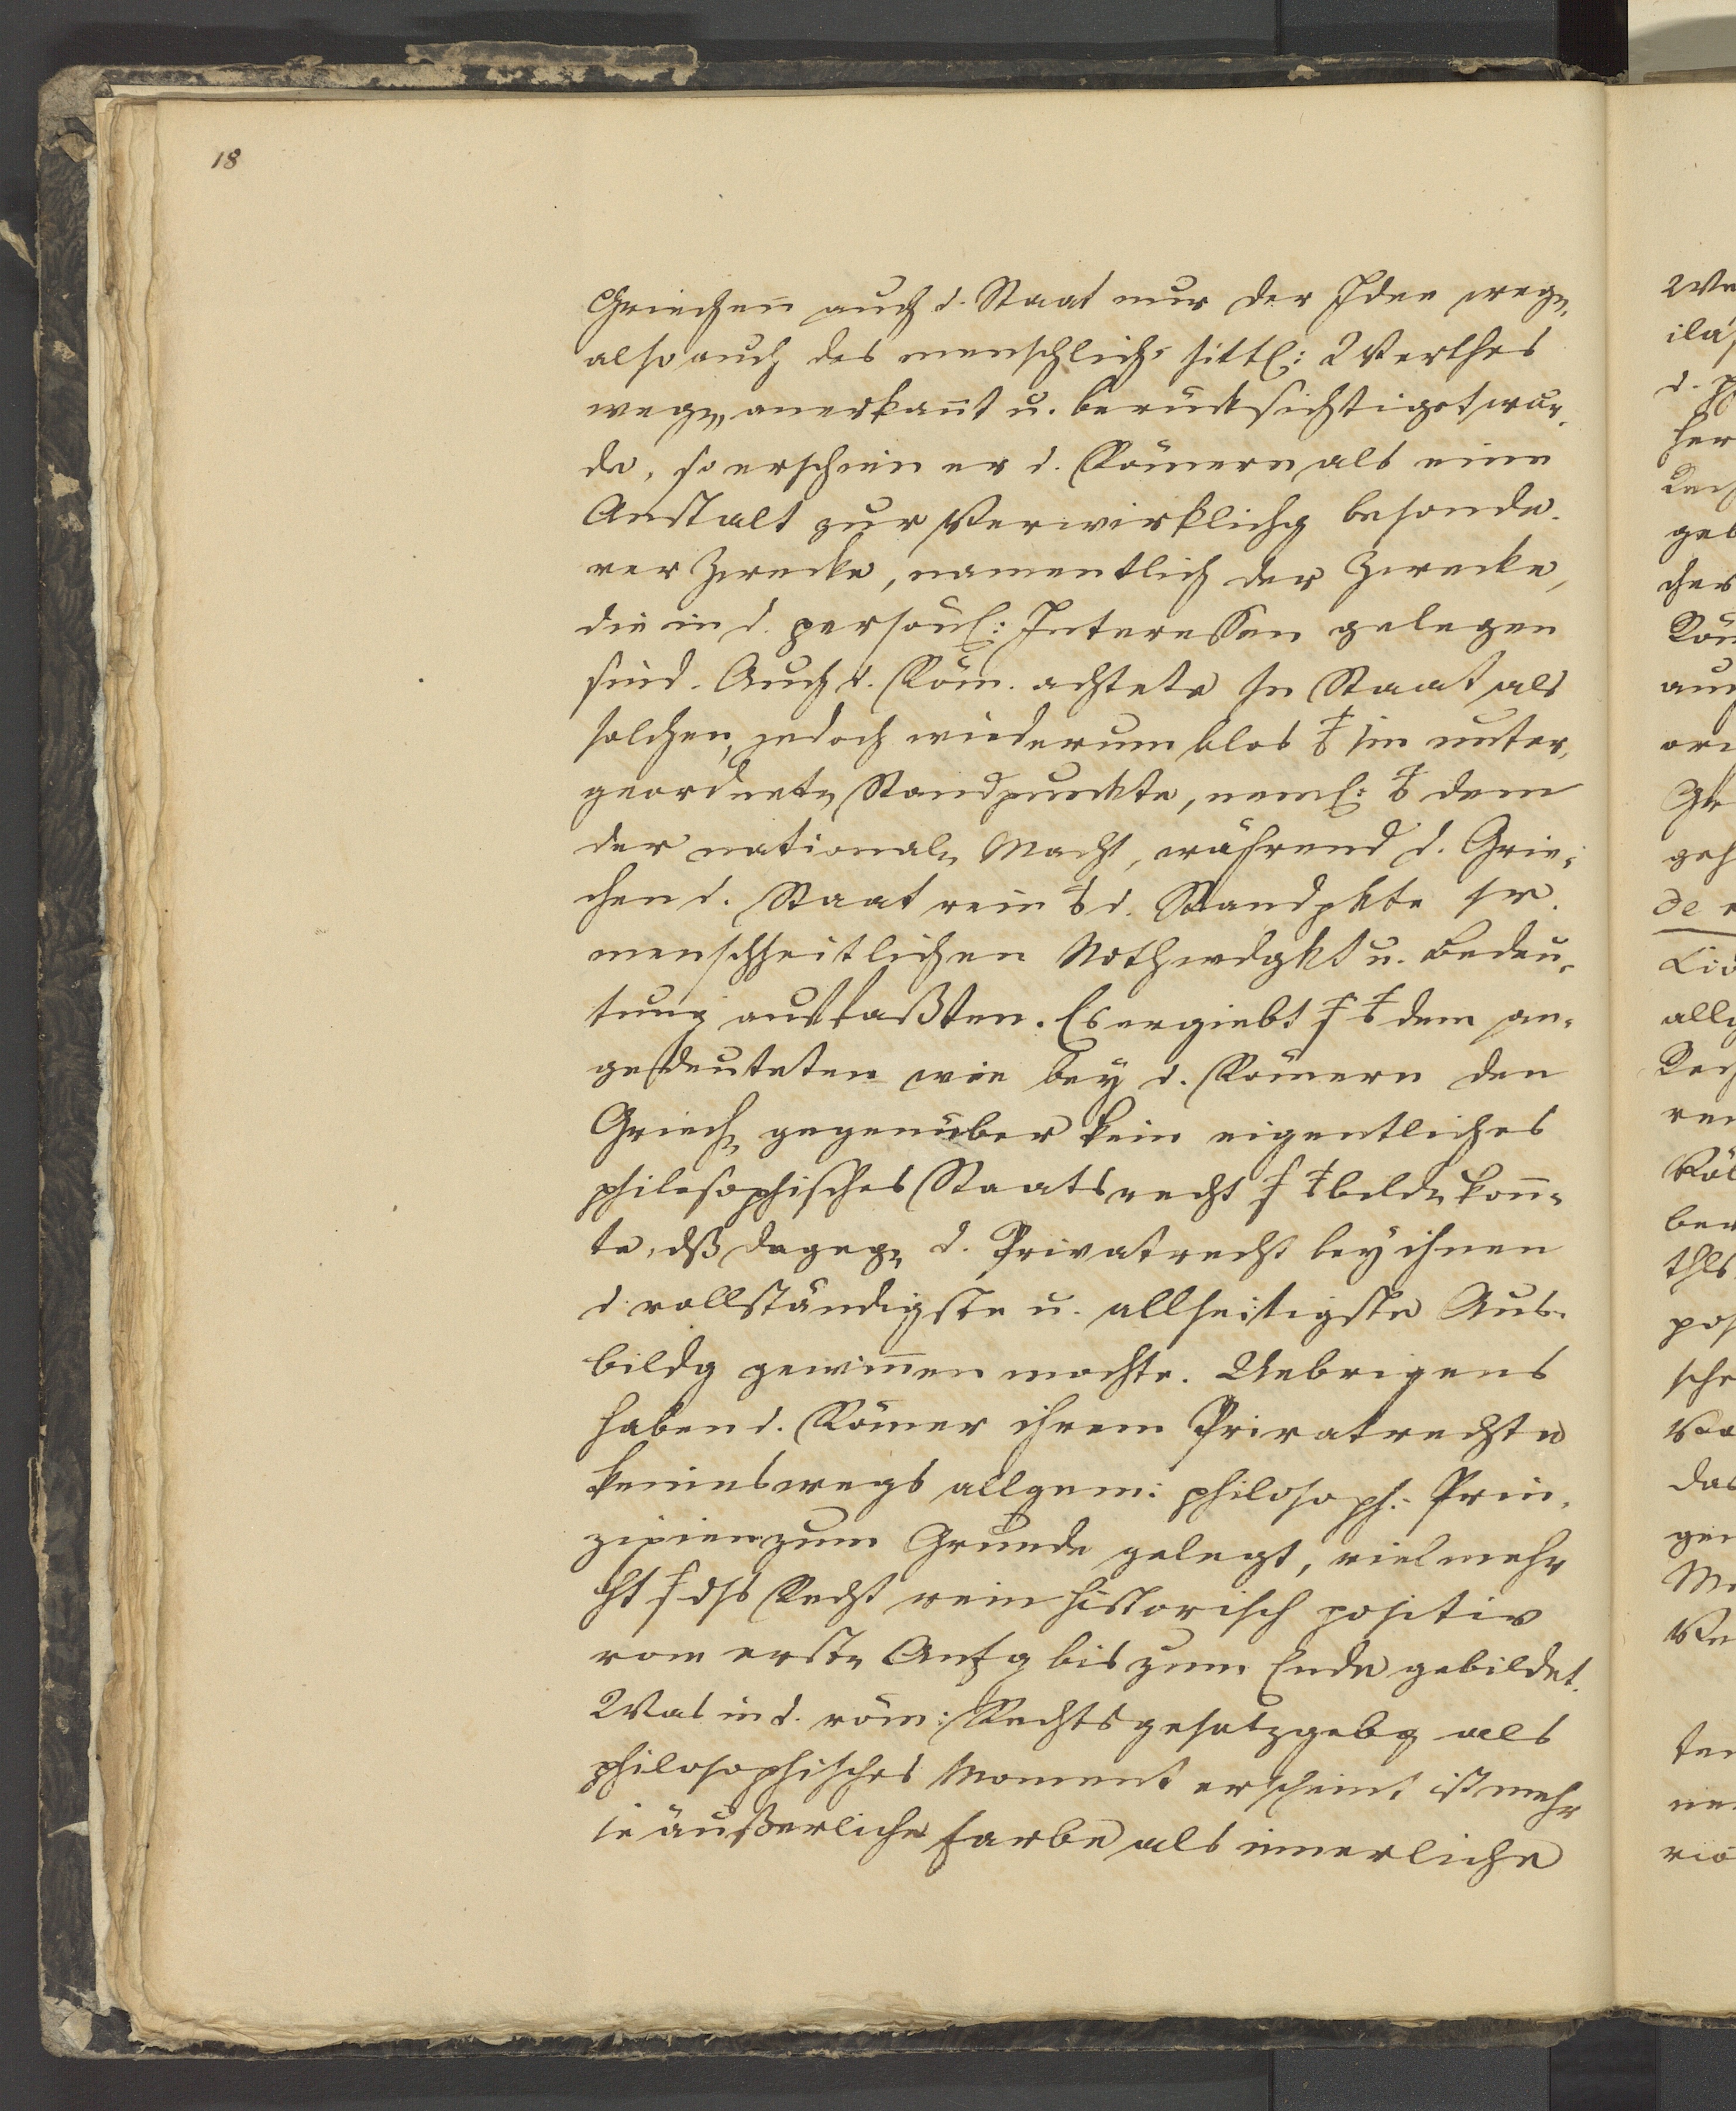 18
Griechen auch d. Staat nur der Idee weg.
also auch des menschlich sittl: Werthes
weg. anerkannt u. berücksichtiget wur-
de, so erschien er d. Römern als eine
Anstalt zur Verwirklichg besonde-
rer Zwecke, namentlich der Zwecke,
die in d. persönl: Interessen gelegen
sind. Auch d. Röm. achtete Staat als
solchen, jedoch wiederum blos unter-
geordnete Standpunkte, neml: dem
der national. Macht, während d. Grie-
chen d. Staat rein d. Standpkte
menschheitlichen Nothwdgkt u. Bedeu-
tung auffaßten. Es ergiebt dem an-
gedeuteten wie bey d. Römern den
Griech. gegenüber kein eigentliches
philosophisches Staatsrecht bild. konn-
te, dß dageg. d. Privatrecht bey ihnen
d. vollständigste u. allseitigste Aus-
bildg gewinnen mochte. Uebrigens
haben d. Römer ihrem Privatrechte
keineswegs allgem: philosoph: Prin-
zipien zum Grunde gelegt, vielmehr
ht dss Recht rein historisch positiv
vom erste Anfg bis zum Ende gebildet.
Was in d. röm: Rechtsgesetzgebg als
philosophisches Moment erscheint ist mehr
äußerliche Farbe als innerliche